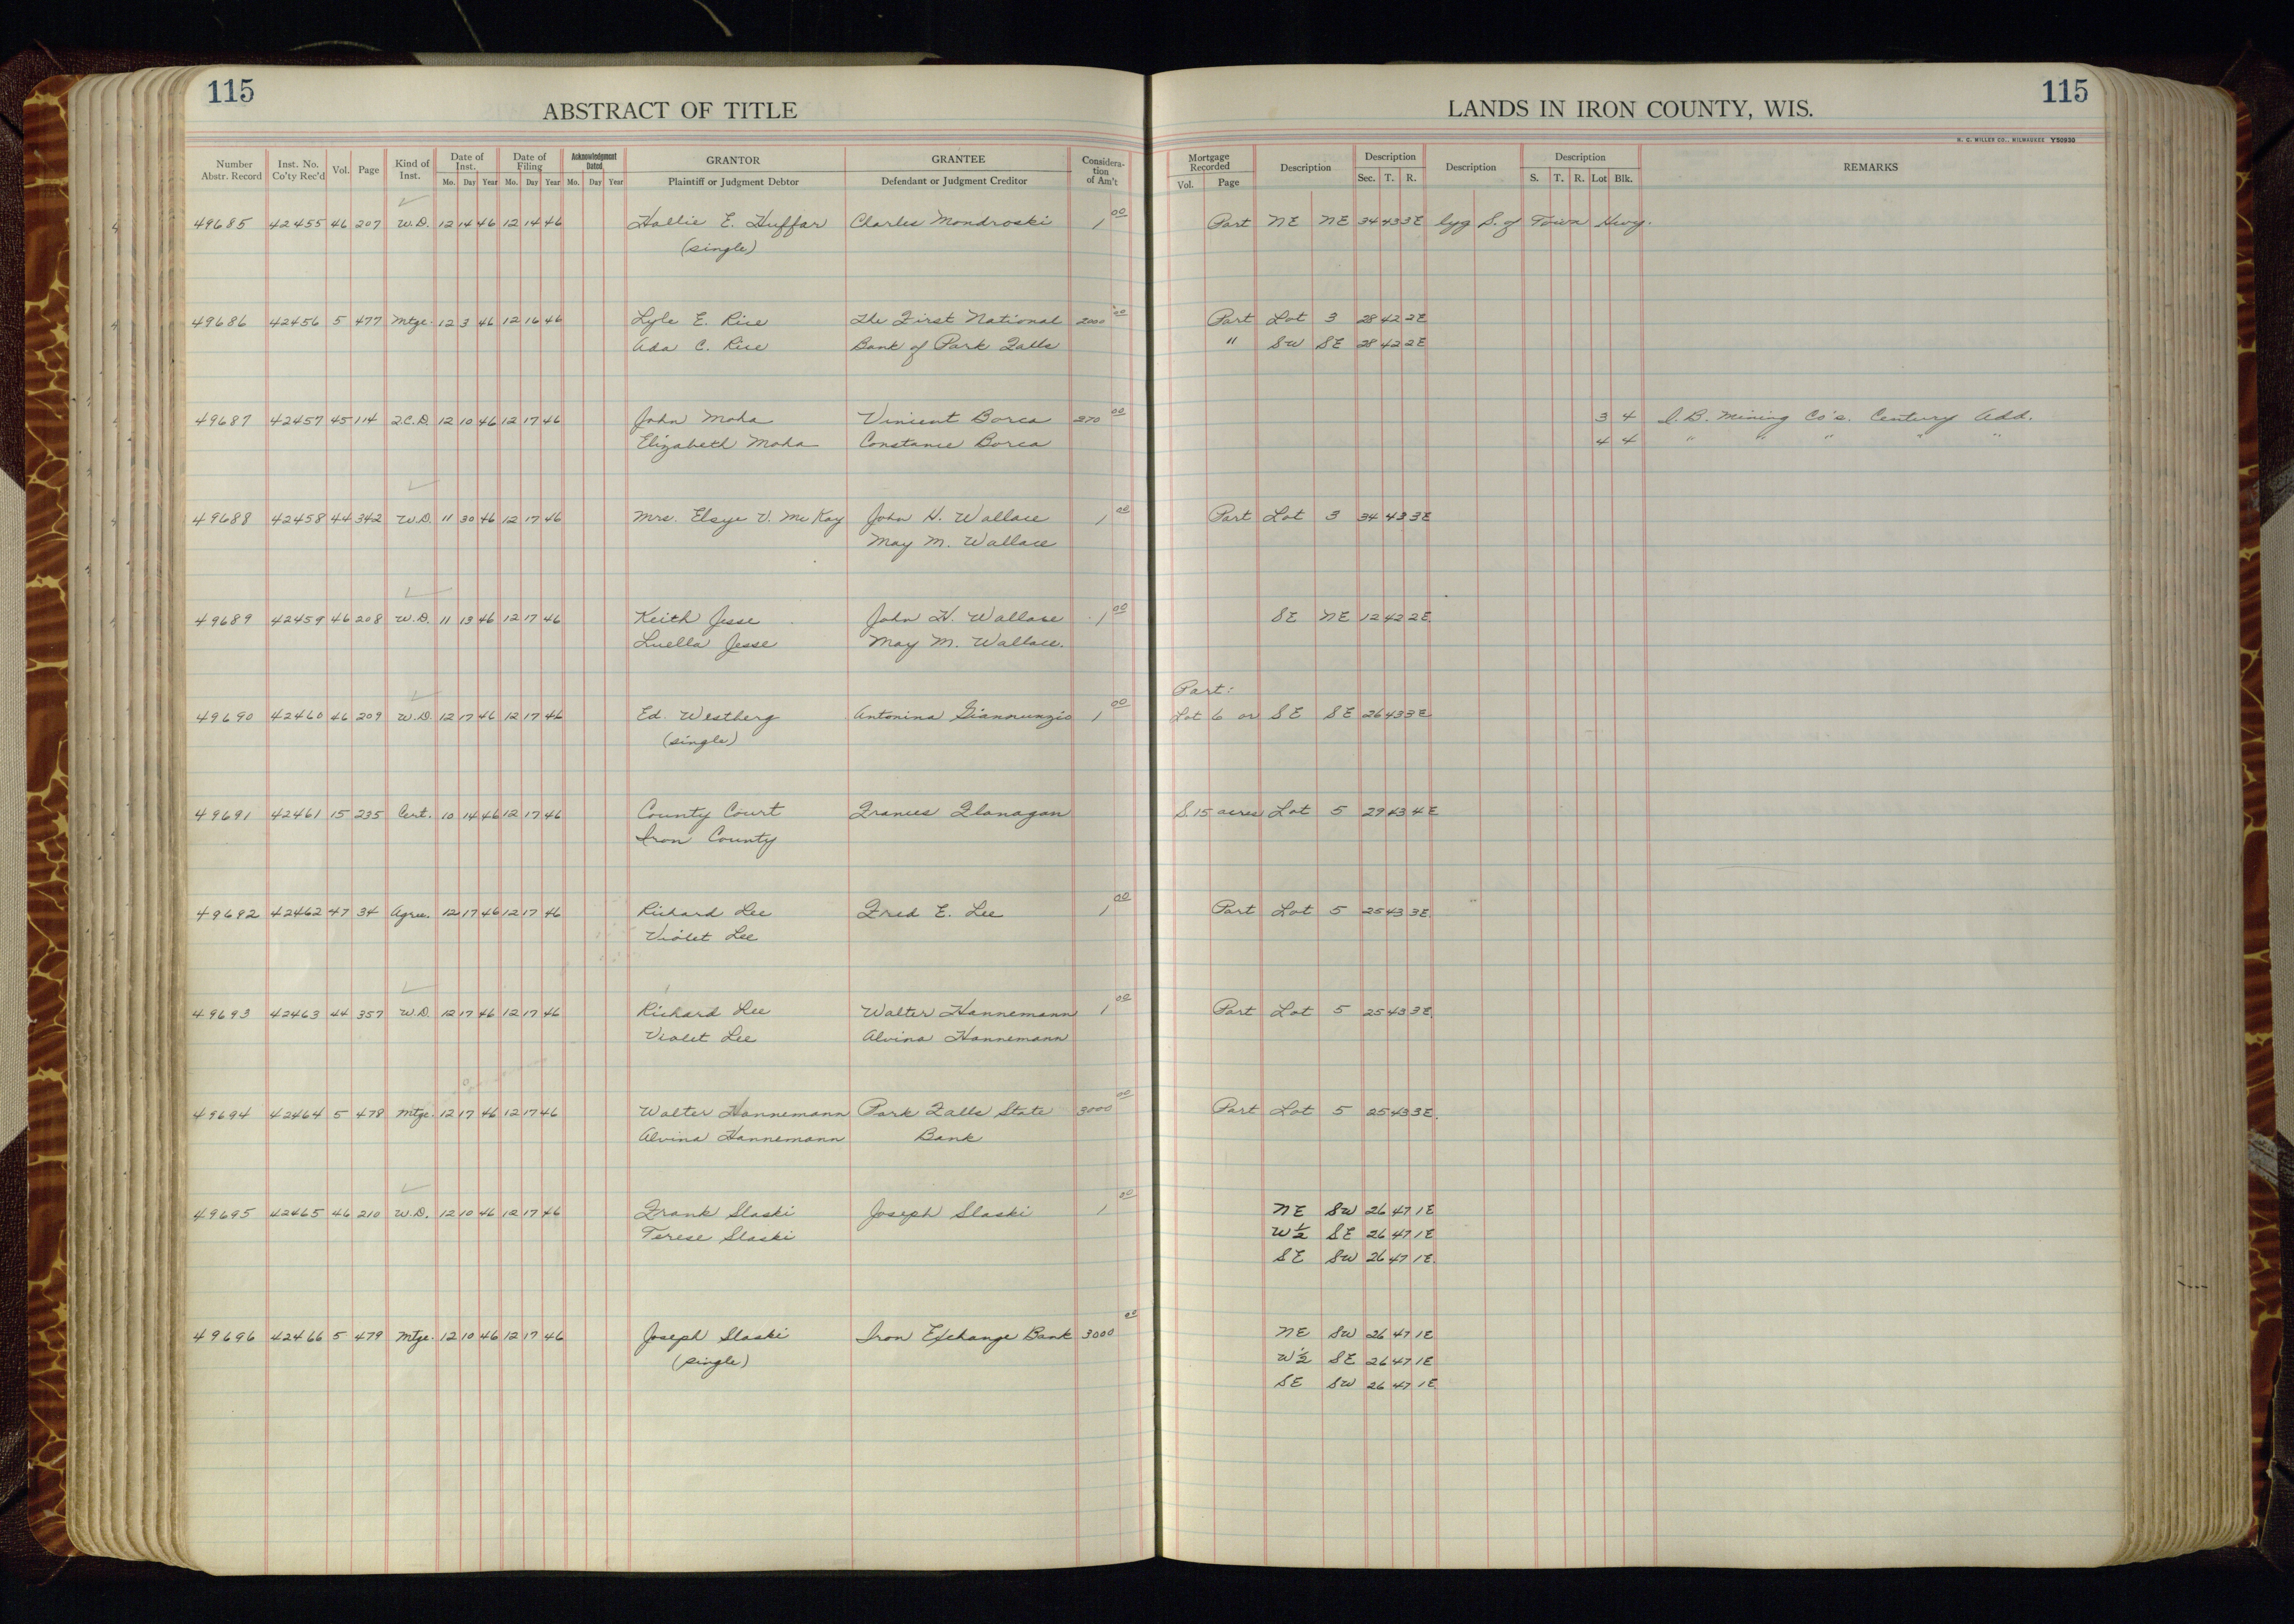 115
ABSTRACT OF TITLE
LANDS IN IRON COUNTY, WIS.
115
H. C. MILLER CO., MILWAUKEE Y50930
Number Abstr. Record | Inst. No. Co'ty Rec'd | Vol. | Page | Kind of Inst. | Date of Inst. Mo. Day Year | Date of Filing Mo. Day Year | Acknowledgment Dated Mo. Day Year | GRANTOR Plaintiff or Judgment Debtor | GRANTEE Defendant or Judgment Creditor | Consideration of Am't | Mortgage Recorded Vol. Page | Description | Description Sec. T. R. | Description | Description S. T. R. Lot Blk. | REMARKS
49685 42455 46 207 W.D. 12 14 46 12 14 46 Hallie E. Huffar Charles Mondroski 1 00 Part NE NE 34 43 3E lyg S. of Town Hwy.
(single)
49686 42456 5 477 Mtge. 12 3 46 12 16 46 Lyle E. Rice The First National 2000 00 Part Lot 3 28 42 2E
Ada C. Rice Bank of Park Falls " SW SE 28 42 2E
49687 42457 45 114 2.C.D. 12 10 46 12 17 46 John Moha Vincent Borca 370 00 3 4 I.B. Mining Co's. Century Add.
Elizabeth Moha Constance Borca 4 4 " " " " "
49688 42458 44 342 W.D. 11 30 46 12 17 46 Mrs. Elsye V. McKay John H. Wallace 1 00 Part Lot 3 34 43 3E
May M. Wallace
49689 42459 46 208 W.D. 11 13 46 12 17 46 Keith Jesse John H. Wallace 1 00 SE NE 12 42 2E
Luella Jesse May M. Wallace.
Part:
49690 42460 46 209 W.D. 12 17 46 12 17 46 Ed. Westberg Antonina Giannunzio 1 00 Lot 6 or SE SE 26 43 3E
(single)
49691 42461 15 235 Cert. 10 14 46 12 17 46 County Court Frances Flanagan S. 15 acres Lot 5 29 43 4E
Iron County
49692 42462 47 34 Agree. 12 17 46 12 17 46 Richard Lee Fred E. Lee 1 00 Part Lot 5 25 43 3E
Violet Lee
49693 42463 44 357 W.D. 12 17 46 12 17 46 Richard Lee Walter Hannemann 1 00 Part Lot 5 25 43 3E
Violet Lee Alvina Hannemann
49694 42464 5 478 Mtge. 12 17 46 12 17 46 Walter Hannemann Park Falls State 3000 00 Part Lot 5 25 43 3E.
Alvina Hannemann Bank
49695 42465 46 210 W.D. 12 10 46 12 17 46 Frank Slaski Joseph Slaski 1 00 NE SW 26 47 1E
Terese Slaski W½ SE 26 47 1E
SE SW 26 47 1E
49696 42466 5 479 Mtge. 12 10 46 12 17 46 Joseph Slaski Iron Exchange Bank 3000 00 NE SW 26 47 1E
(single) W½ SE 26 47 1E
SE SW 26 47 1E